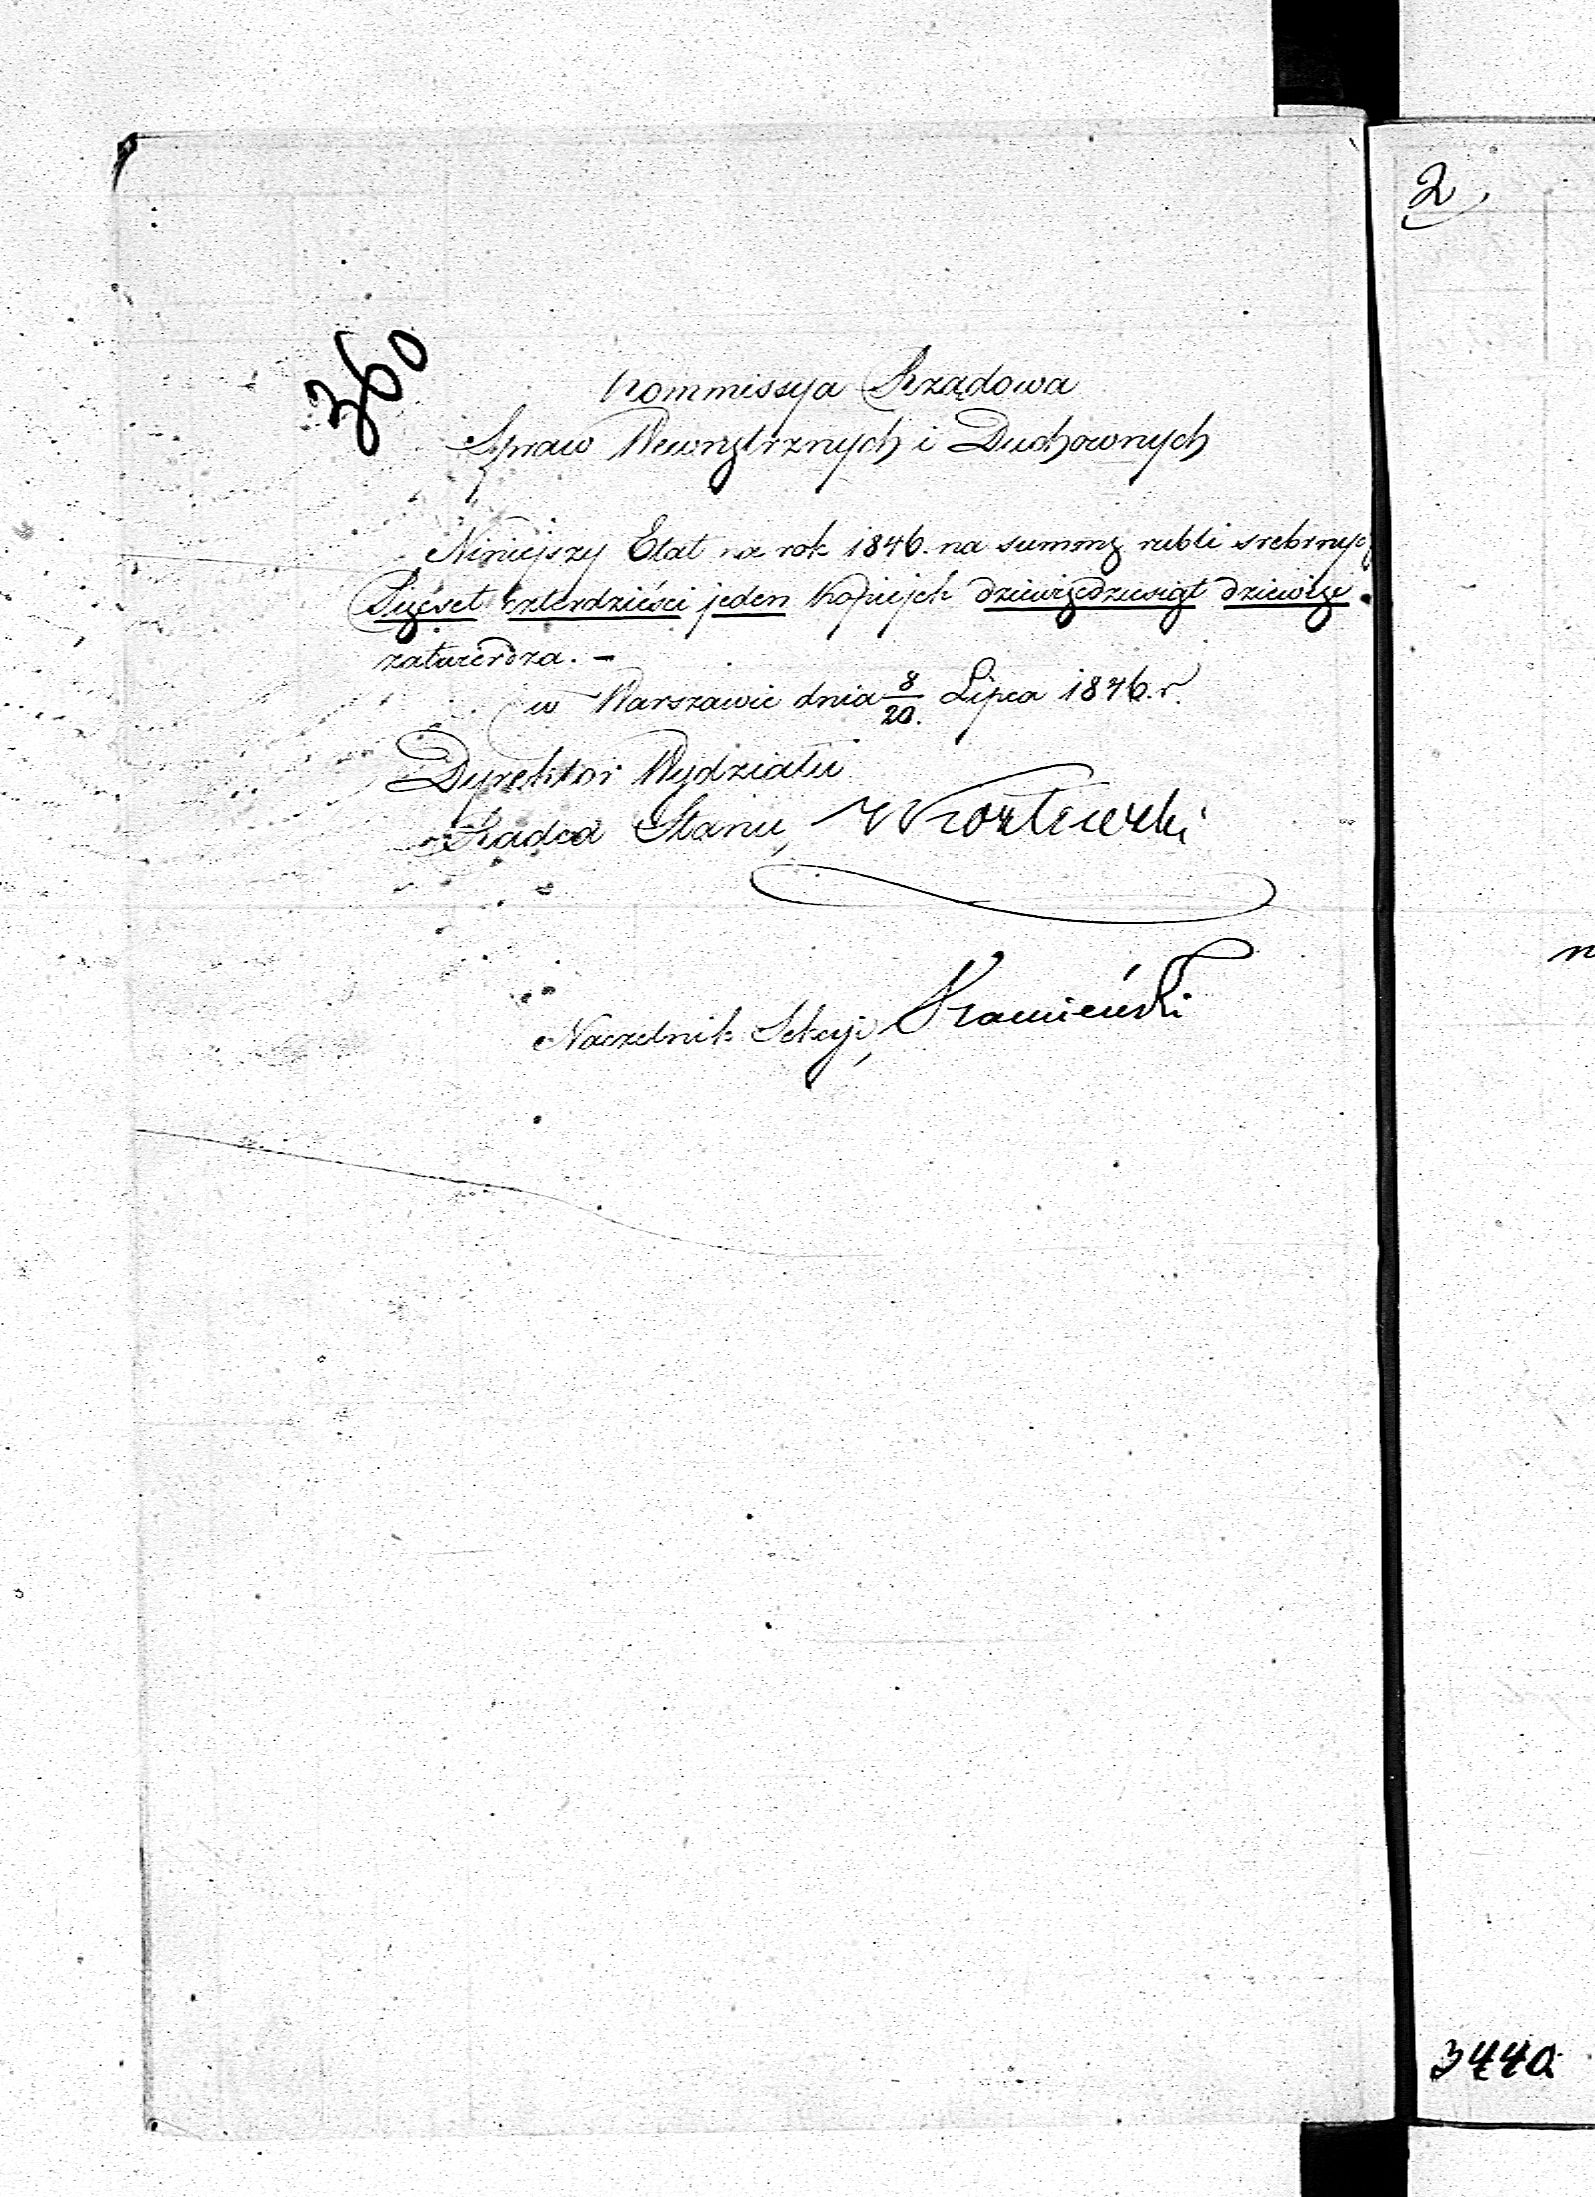 2.
360
Kommissya Rządowa
Spraw Wewnętrznych i Duchownych
Niniejszy Etat na rok 1846. na summę rubli srebrnych
Sześset czterdzieści jeden kopiejek dziewięćdziesiąt dziewięć
zatwierdza. –
w Warszawie dnia 8/20. Lipca 1846. r.
Dyrektor Wydziału
Radca Stanu,
Naczelnik Sekcyi, Kamieński
n
3440